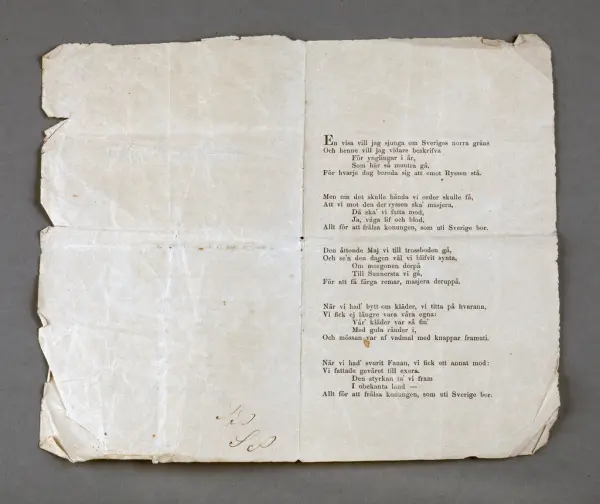 En visa vill jag sjunga om Sveriges norra gräns
Och henne vill jag vidare beskrifva
För ynglingar i år,
Som här så muntra gå,
För hvarje dag bereda sig att emot Ryssen stå.
Men om det skulle hända vi order skulle få,
Att vi mot den der ryssen ska' masjera,
Då ska' vi fatta mod,
Ja, våga lif och blod,
Allt för att frälsa konungen, som uti Sverige bor.
Den åttonde Maj vi till trossboden gå,
Och se'n den dagen väl vi blifvit synta,
Om morgonen derpå
Till Sunnersta vi gå,
För att få färga remar, masjera deruppå.
När vi had' bytt om kläder, vi titta på hvarann,
Vi fick ej längre vara våra egna:
Vår' kläder var så fin'
Med gula ränder i,
Och mössan var af vadmal med knappar framuti.
När vi had' svurit Fanan, vi fick ett annat mod:
Vi fattade geväret till exera.
Den styrkan ta' vi fram
I obekanta land —
Allt för att frälsa konungen, som uti Sverige bor.